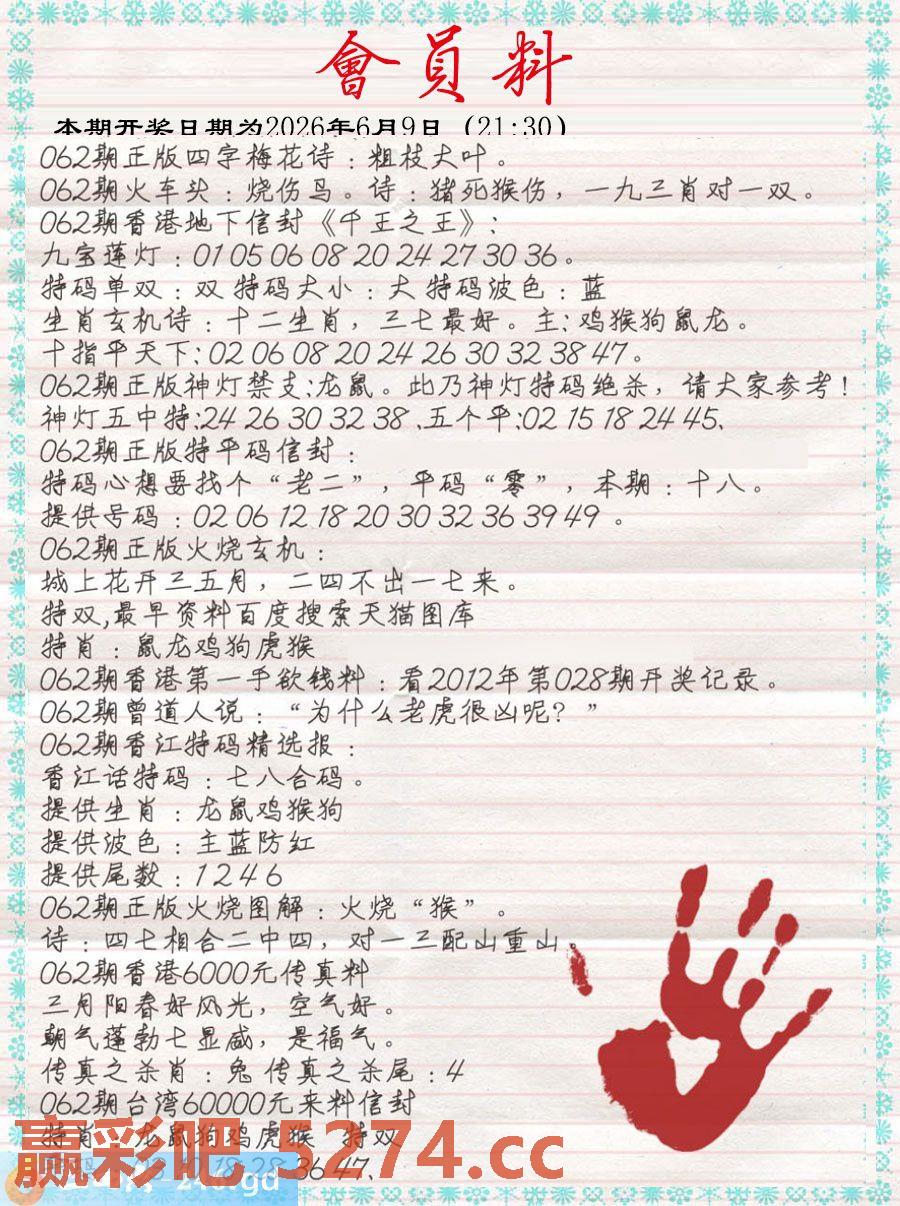 會員料
本期开奖日期为2026年6月9日（21:30）
062期正版四字梅花诗：粗枝大叶。
062期火车头：烧伤鸟。诗：猪死猴伤，一九三肖对一双。
062期香港地下信封《千王之王》:
九宝莲灯：01 05 06 08 20 24 27 30 36。
特码单双：双 特码大小：大 特码波色：蓝
生肖玄机诗：十二生肖，三七最好。主:鸡猴狗鼠龙。
十指平天下:02 06 08 20 24 26 30 32 38 47。
062期正版神灯禁支:龙鼠。此乃神灯特码绝杀，请大家参考！
神灯五中特:24 26 30 32 38 、五个平:02 15 18 24 45、
062期正版特平码信封：
特码心想要找个“老二”，平码“零”，本期：十八。
提供号码：02 06 12 18 20 30 32 36 39 49 。
062期正版火烧玄机：
城上花开三五月，二四不出一七来。
特双,最早资料百度搜索天猫图库
特肖：鼠龙鸡狗虎猴
062期香港第一手欲钱料：看2012年第028期开奖记录。
062期曾道人说：“为什么老虎很凶呢？”
062期香江特码精选报：
香江话特码：七八合码。
提供生肖：龙鼠鸡猴狗
提供波色：主蓝防红
提供尾数：1 2 4 6
062期正版火烧图解：火烧“猴”。
诗：四七相合二中四，对一三配山重山。
062期香港6000元传真料
三月阳春好风光，空气好。
朝气蓬勃七显威，是福气。
传真之杀肖：兔 传真之杀尾：4
062期台湾60000元来料信封
特肖：龙鼠狗鸡虎猴 特双
18 28 36 47、
赢彩吧.5274.cc